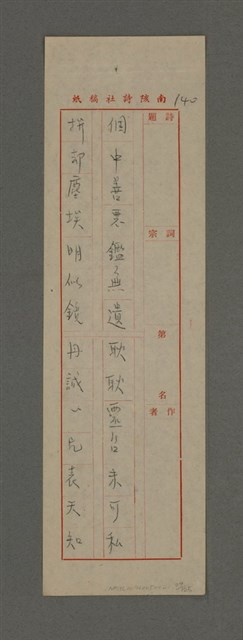 南陔詩社稿紙
140
詩題
詞宗
第 名
作者
個中善惡鑑無遺 耿耿靈台未可私
拼却塵埃明似鏡 丹誠一点表天知